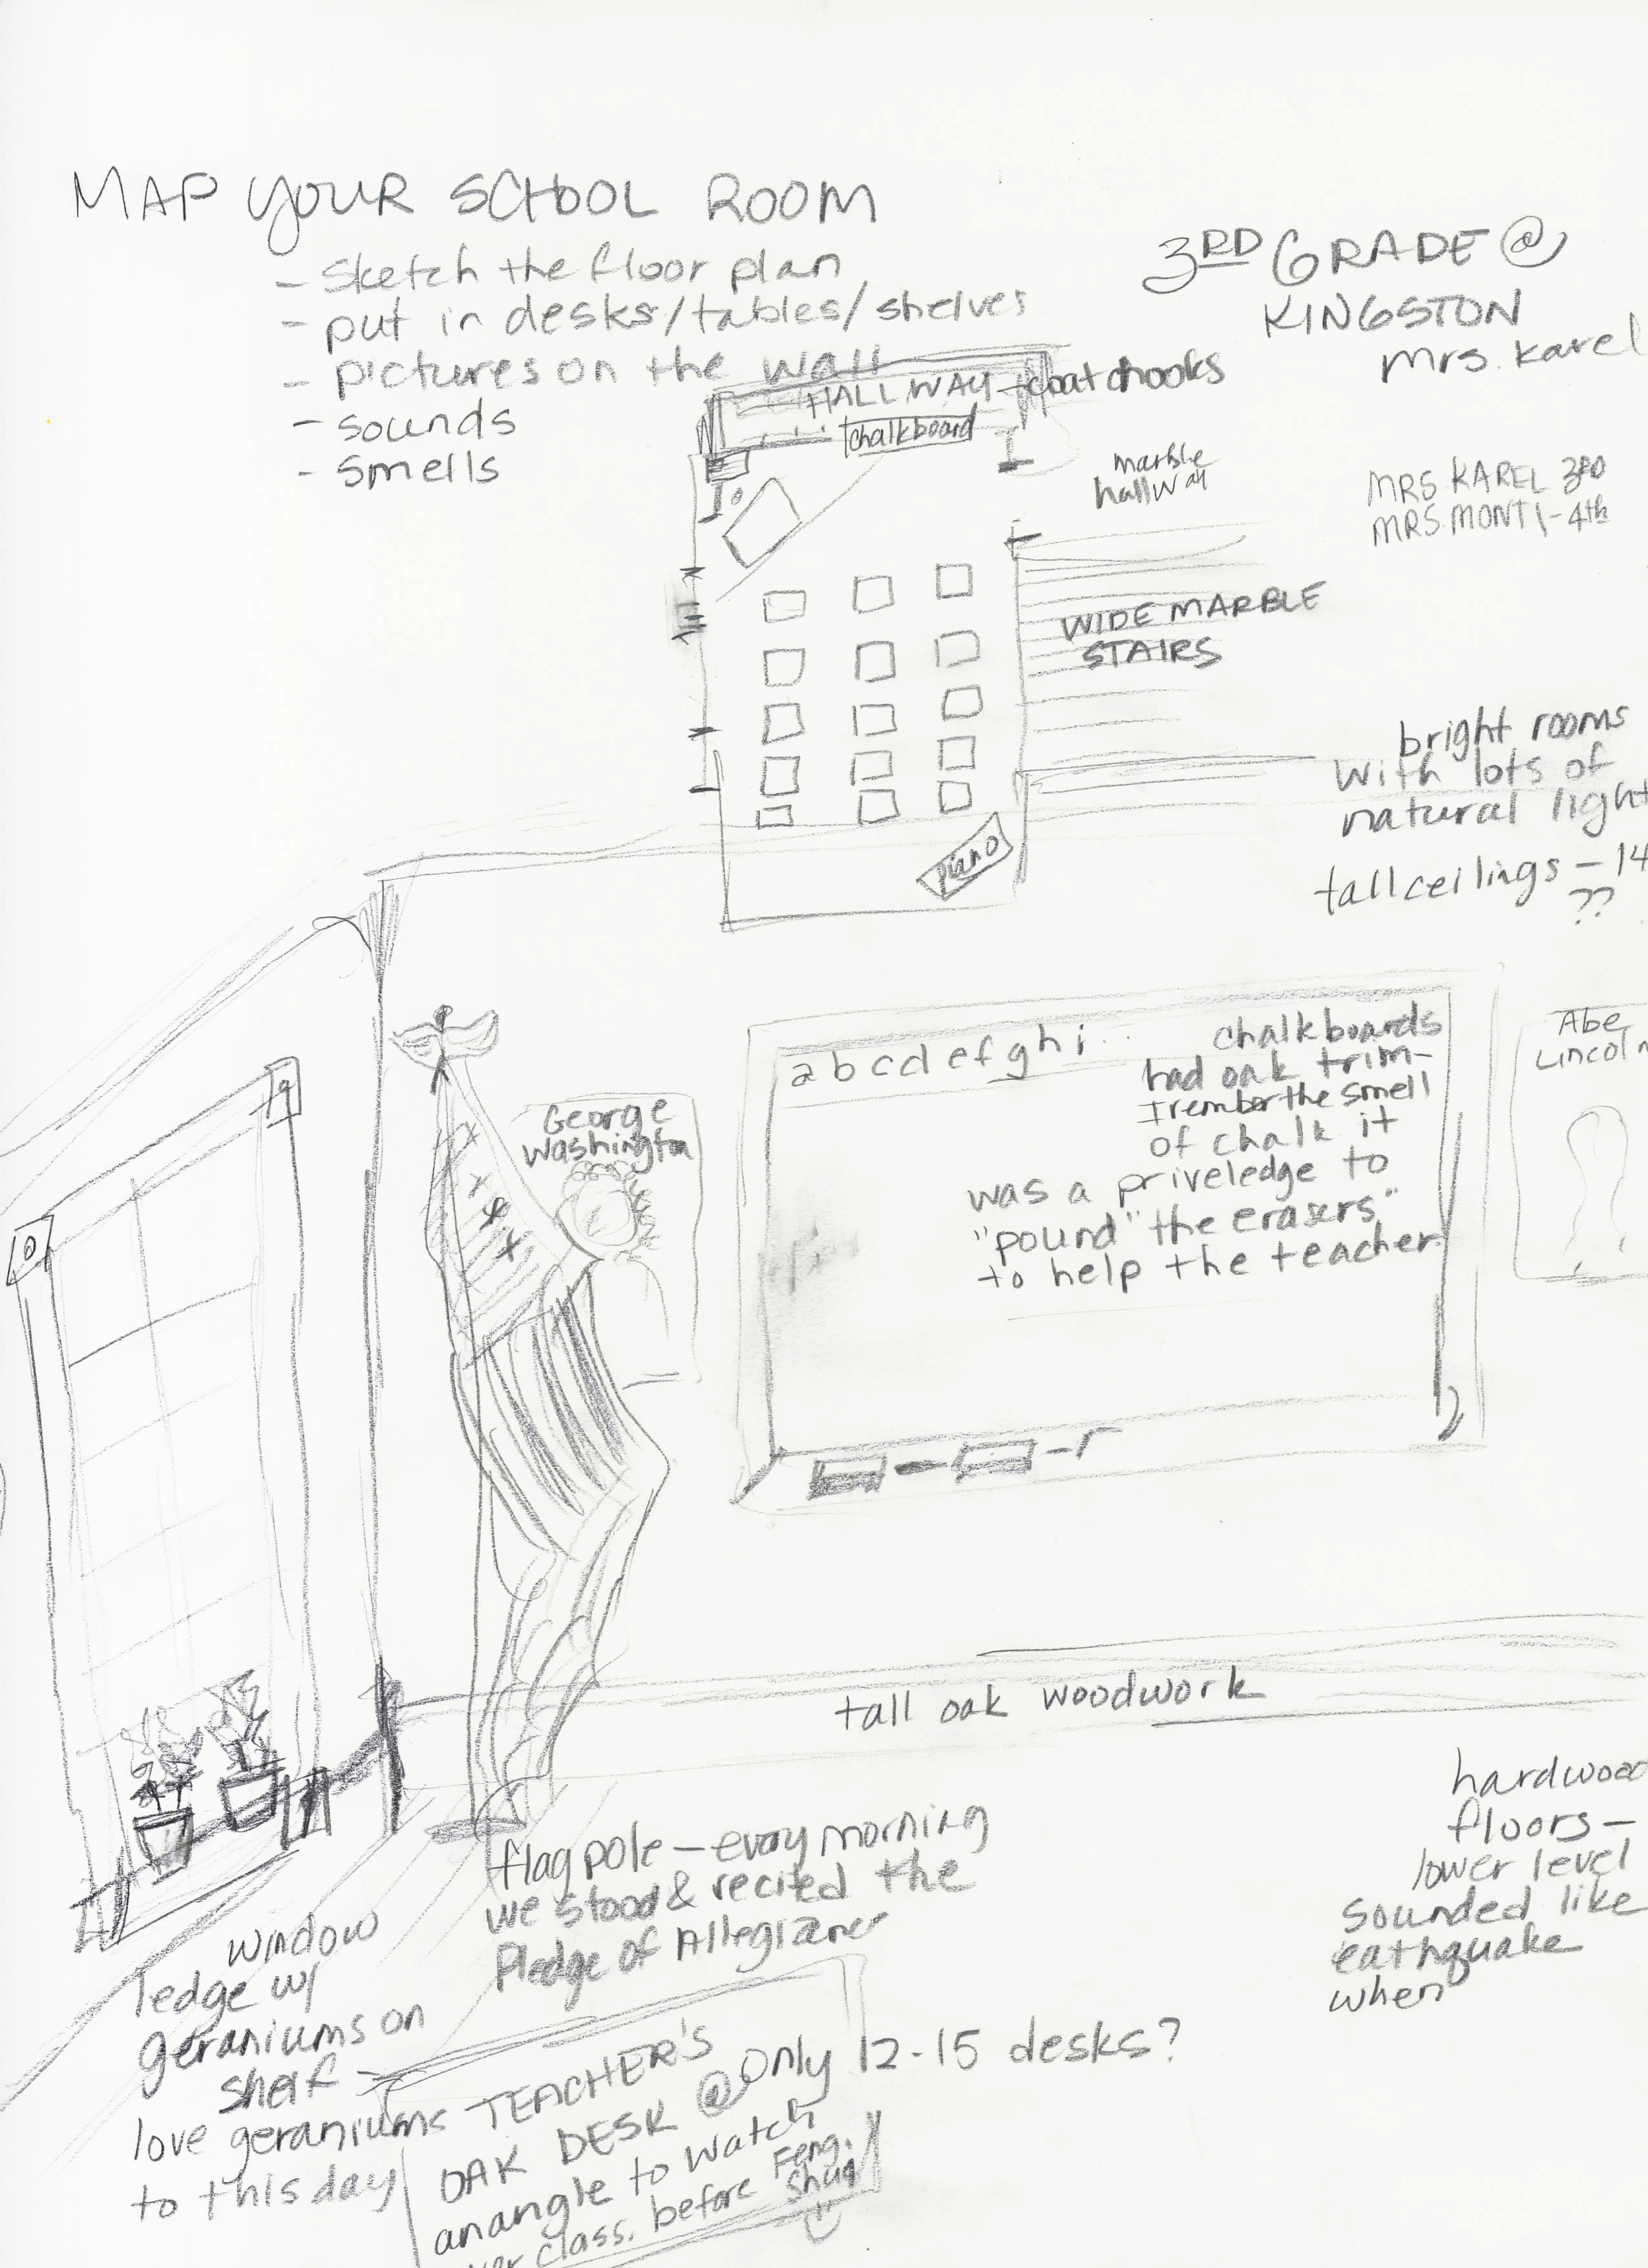 MAP YOUR SCHOOL ROOM
- Sketch the floor plan
- put in desks/tables/shelves
- pictures on the wall
- sounds
- smells
3RD GRADE @
KINGSTON
Mrs. Karel
HALLWAY - coat hooks
chalkboard
marble
hallway
MRS KAREL 3RD
MRS. MONTI - 4th
WIDE MARBLE
STAIRS
bright rooms
with lots of
natural light
tall ceilings - 14
??
piano
a b c d e f g h i
chalkboards
had oak trim-
I rember the smell
of chalk it
was a priveledge to
"pound" the erasers"
to help the teacher.
Abe
Lincoln
George
Washington
tall oak woodwork
hardwood
floors -
lower level
sounded like
eathquake
when
flag pole - every morning
we stood & recited the
Pledge of
window
ledge w/
geraniums on
shelf -
love geraniums
to this day
Only 12-15 desks?
TEACHER'S
OAK DESK @
an angle to watch
class. before Feng.
Shui